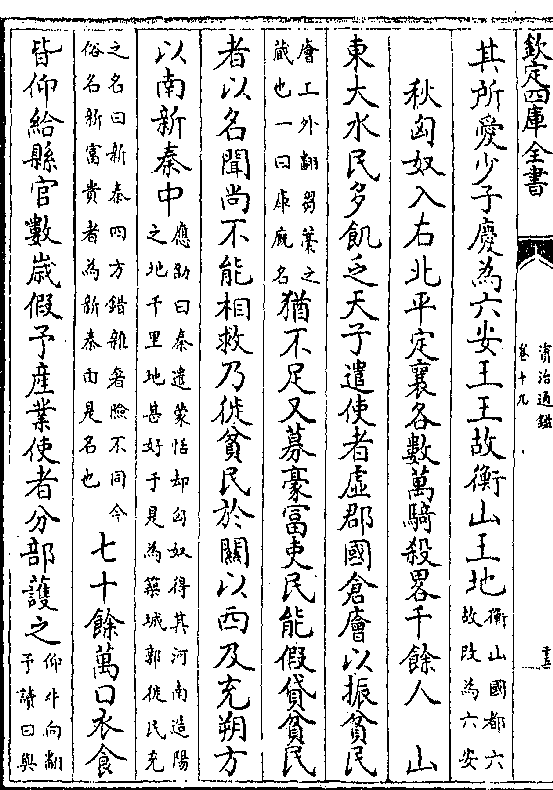 欽定四庫全書
資治通鑑
卷十九
其所愛少子慶為六安王王故衡山王地衡山國都六故改為六安
秋匈奴入右北平定襄各數萬騎殺畧千餘人　山
東大水民多飢乏天子遣使者虚郡國倉廥以振貧民
廥工外翻芻藁之藏也一曰庫廐名猶不足又募豪富吏民能假貸貧民
者以名聞尚不能相救乃徙貧民於關以西及充朔方
以南新秦中應劭曰秦遣蒙恬却匈奴得其河南造陽之地千里地甚好于是為築城郭徙民充
之名曰新秦四方錯雜奢險不同今俗名新富貴者為新秦由是名也七十餘萬口衣食
皆仰給縣官數歳假予産業使者分部護之仰牛向翻予讀曰與